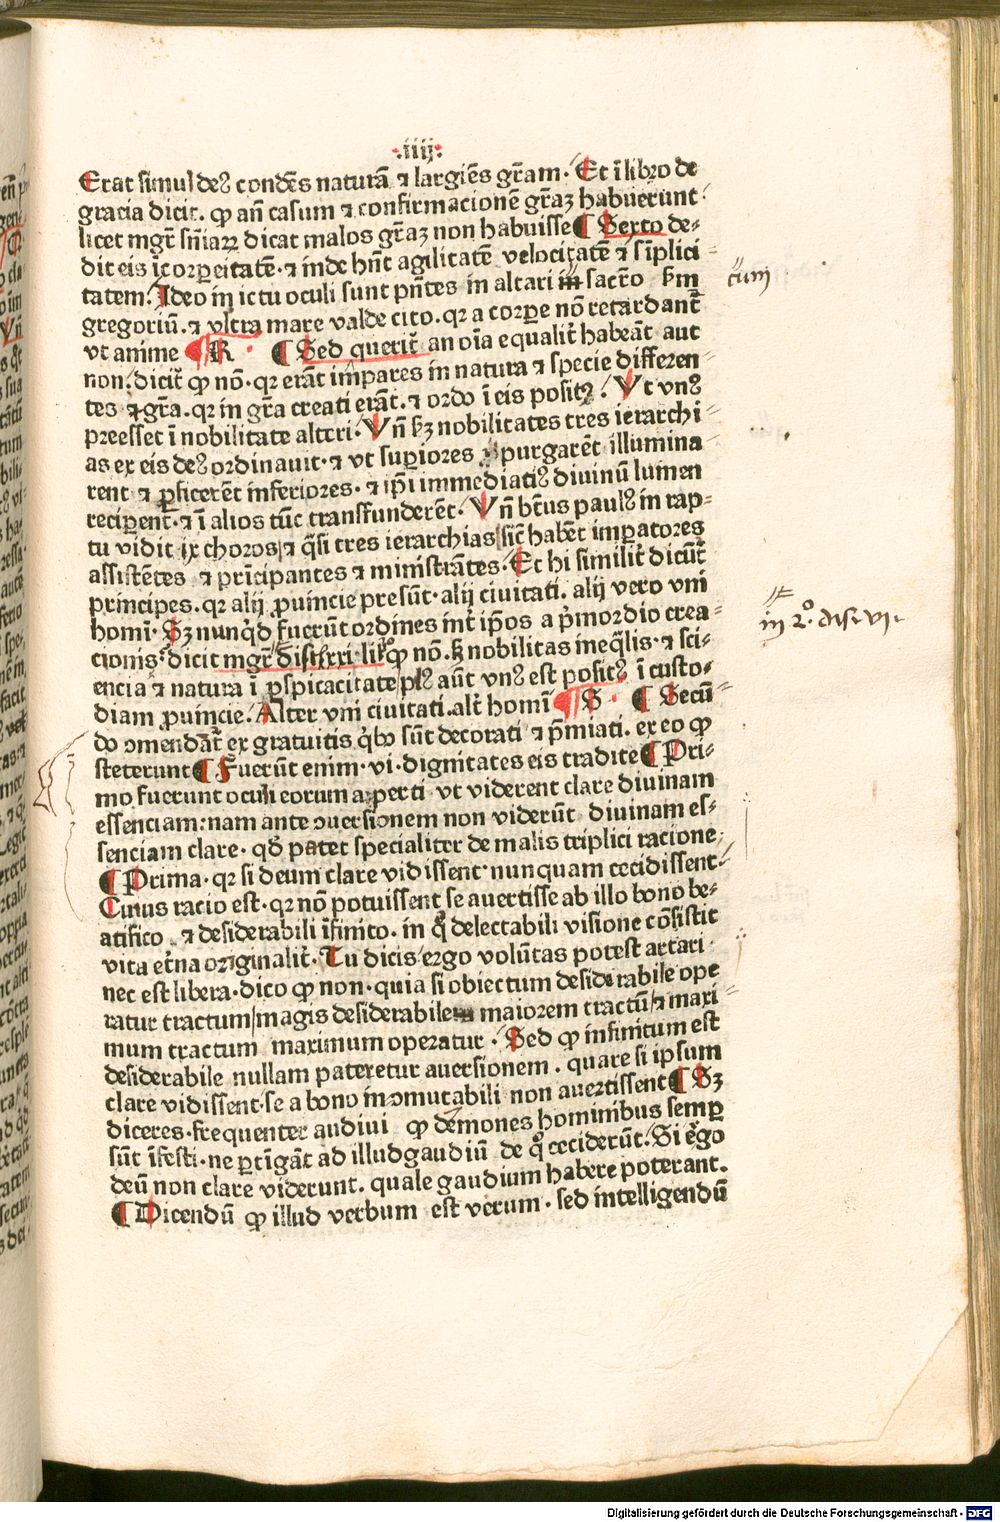 .iiij.
Erat simul deꝰ condēs naturā ⁊ largiēs gr̄am. Et ī libro de
gracia dicit. ꝙ an̄ casum ⁊ confirmacionē gr̄aꝫ habuerunt
licet mgr̄ sn̄iaꝝ dicat malos gr̄aꝫ non habuisse ¶ Sexto de-
dit eis īcorꝑeitatē. ⁊ inde hn̄t agilitatē velocitatē ⁊ sīplici
tatem. Ideo in ictu oculi sunt pn̄tes in altari in sacr̄o ẜm
cum
gregoriū. ⁊ vltra mare valde cito. qꝛ a corꝑe nō retardant̄
vt anime ¶ R ¶ Sed querit̄ an oīa equalit̄ habeāt aut
non. dicit̄ ꝙ nō. qꝛ erāt impares in natura ⁊ specie differen
tes ⁊ gr̄a. qꝛ in gr̄a creati erāt. ⁊ ordo ī eis positꝰ. Vt vnꝰ
preesset ī nobilitate alteri. Vn̄ ẜꝫ nobilitates tres ierarchi
as ex eis deꝰ ordinauit. ⁊ vt suꝑiores purgarēt illumina
rent ⁊ ꝑficerēt inferiores. ⁊ ip̄i immediatiꝰ diuinū lumen
reciꝑent. ⁊ ī alios tūc transfunderēt. Vn̄ btūs paulꝰ in rap-
tu vidit ix choros ⁊ q̄si tres ierarchias sic̄ habēt imꝑatores
assistētes ⁊ prīcipantes ⁊ ministrātes. Et hi similit̄ dicūt̄
principes. qꝛ alij ꝓuincie presūt. alij ciuitati. alij vero vni
homī. Sꝫ nunqͥd fuerūt ordines int̄ ip̄os a pͥmordio crea-
in 2º. dist. vi.
cionis. dicit mgr̄ ꝙ nō. ẜꝫ nobilitas ineq̄lis. ⁊ sci-
encia ⁊ natura ī ꝑspicacitate plꝰ aūt vnꝰ est positꝰ ī custo-
diam ꝓuincie. Alter vni ciuitati. alt̄ homī ¶ S ¶ Secū-
do ꝯmendāt̄ ex gratuitis qͥbꝰ sūt decorati ⁊ p̄miati. ex eo ꝙ
steterunt ¶ Fuerūt enim. vi. dignitates eis tradite ¶ Pri-
mo fuerunt oculi eorum aperti vt viderent clare diuinam
essenciam: nam ante ꝯuersionem non viderūt diuinam es-
senciam clare. qd̄ patet specialiter de malis triplici racione
¶ Prima. qꝛ si deum clare vidissent nunquam cecidissent.
Cuius racio est. qꝛ nō potuissent se auertisse ab illo bono be-
atifico ⁊ desiderabili īfinito. in qͦ delectabili visione cōsistit
vita et̄na originalit̄. Tu dicis ergo volūtas potest artari
nec est libera. dico ꝙ non. quia si obiectum desiderabile ope
ratur tractum magis desiderabile maiorem tractū ⁊ maxi
mum tractum maximum operatur. Sed ꝙ infinitum est
desiderabile nullam pateretur auersionem. quare si ipsum
clare vidissent. se a bono inꝯmutabili non auertissent ¶ Sꝫ
diceres. frequenter audiui ꝙ demones hominibus semꝑ
sūt īfesti. ne ꝑtīgāt ad illud gaudiū de qͦ ceciderūt. Si ergo
deū non clare viderunt. quale gaudium habere poterant.
¶ Dicendū ꝙ illud verbum est verum. sed intelligendū